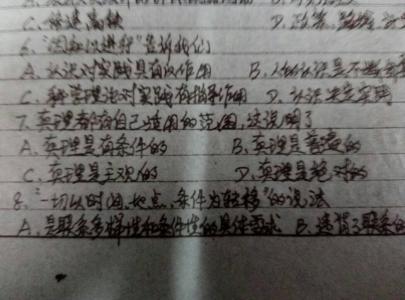 C、促进高楼 D、政策、
6、“因知以进行”告诉我们
A、认识对实践具有反作用 B、人的认识是不断
C、科学理论对实践有指导作用 D、认识决定实践
7、真理都有自己适用的范围,这说明了
A、真理是有条件的 B、真理是普遍的
C、真理是主观的 D、真理是绝对的
8、“一切以时间、地点、条件为转移”的说法
A、是联系多样性和条件性的具体要求 B、违背了联系的